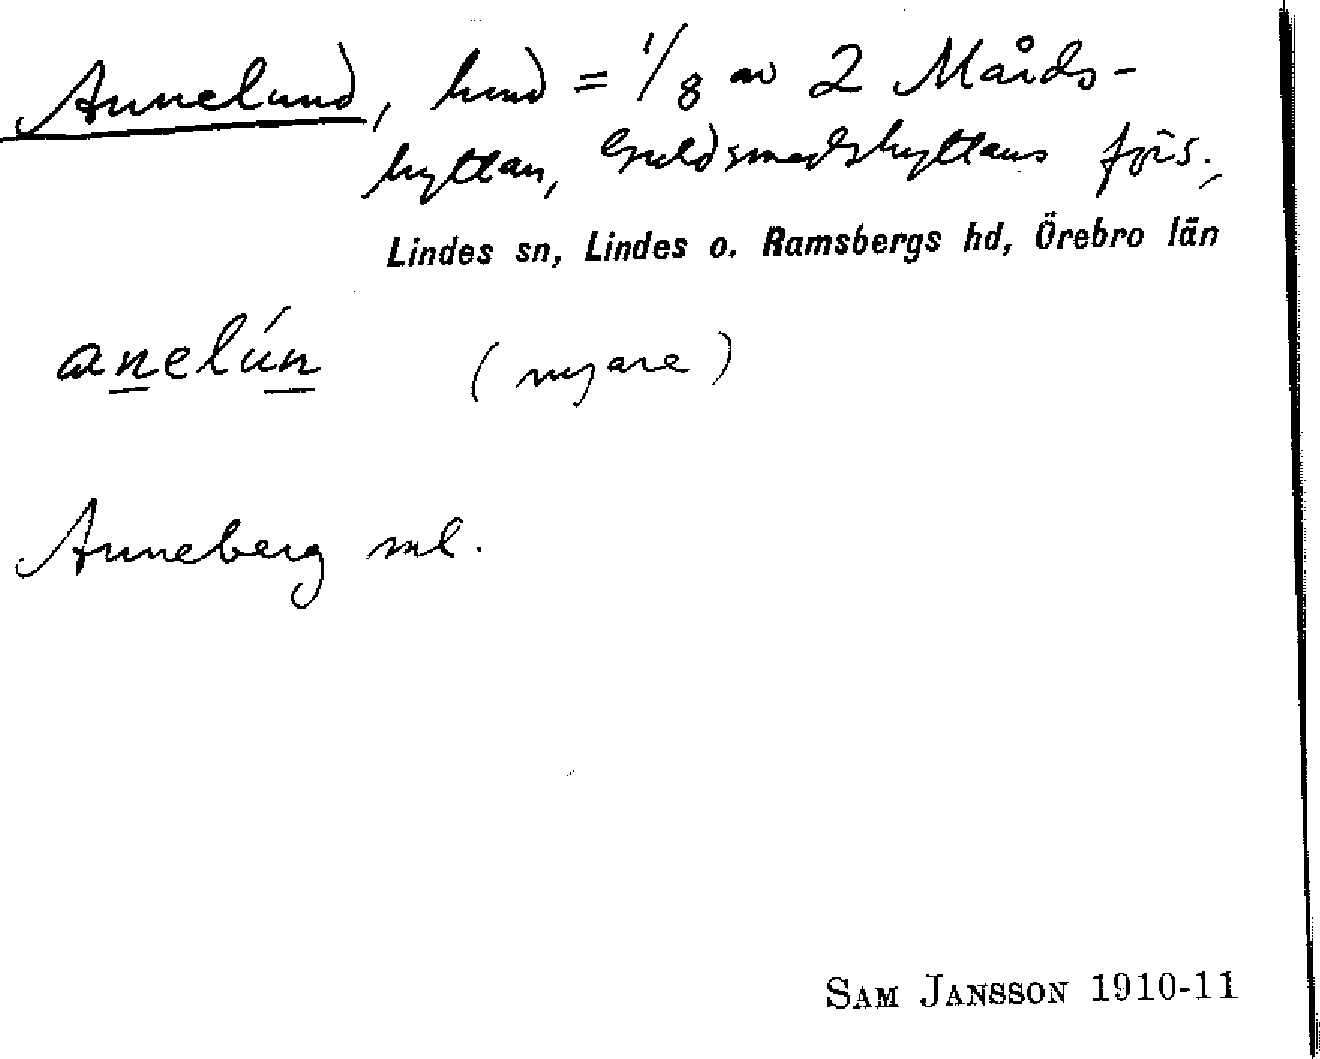 Annelund, hmd = 1/8 av 2 Mårds-
hyttan, Guldsmedshyttans förs.,
Lindes sn, Lindes o. Ramsbergs hd, Örebro län
anelún (nyare)
Anneberg
SAM JANSSON 1910-11